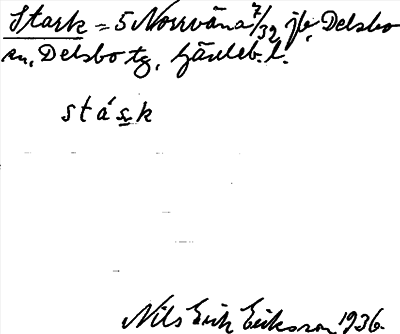 Stark = 5 Norrväna 7/32 jfr, Delsbo
sn, Delsbo tg, Gävleb. l.
stásk
Nils Erik Eriksson 1936.